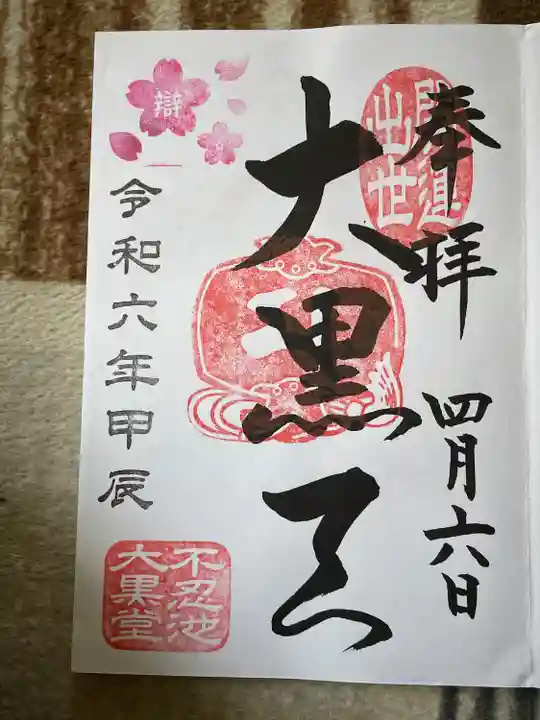 奉拝
四月六日
開運
出世
大黒天
辯
令和六年甲辰
不忍池
大黒堂